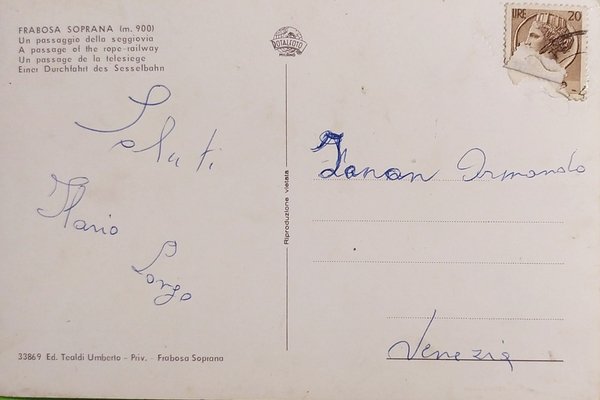 FRABOSA SOPRANA (m. 900)
Un passaggio della seggiovia
A passage of the rope-railway
Un passage de la telesiege
Einer Durchfahrt des Sesselbahn
ROTALFOTO
MILANO
LIRE 20
Saluti
Mario
Longo
Zanon Ormando
Venezia
Riproduzione vietata
33869 Ed. Tealdi Umberto - Priv. - Frabosa Soprana